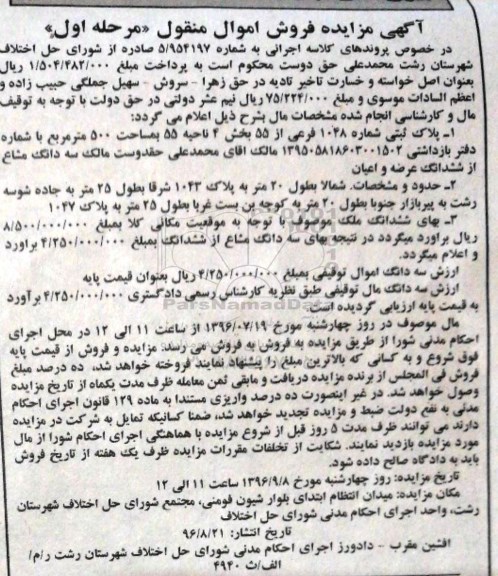 آگهی مزایده فروش اموال منقول «مرحله اول»
در خصوص پروندهای کلاسه اجرائی به شماره ۵/۹۵۴۱۹۷ صادره از شورای حل اختلاف
شهرستان رشت محمدعلی حق دوست محکوم است به پرداخت مبلغ ۱/۵۰۴/۴۸۲/۰۰۰ ریال
بعنوان اصل خواسته و خسارت تاخیر تادیه در حق زهرا - سروش - سهیل جملگی حبیب زاده و
اعظم السادات موسوی و مبلغ ۷۵/۲۲۴/۰۰۰ ریال نیم عشر دولتی در حق دولت با توجه به توقیف
مال و کارشناسی انجام شده مشخصات مال بشرح ذیل اعلام می گردد:
۱- پلاک ثبتی شماره ۱۰۴۸ فرعی از ۵۵ بخش ۴ ناحیه ۵۵ بمساحت ۵۰۰ مترمربع با شماره
دفتر بازداشتی ۱۳۹۵۰۵۸۱۸۶۰۳۰۰۱۵۰۲ مالک اقای محمدعلی حقدوست مالک سه دانگ مشاع
از ششدانگ عرصه و اعیان
۲- حدود و مشخصات. شمالا بطول ۲۰ متر به پلاک ۱۰۴۳ شرقا بطول ۲۵ متر به جاده شوسه
رشت به پیربازار جنوبا بطول ۲۰ متر به کوچه بن بست غربا بطول ۲۵ متر به پلاک ۱۰۴۷
۳- بهای ششدانگ ملک موصوف با توجه به موقعیت مکانی کلا بمبلغ ۸/۵۰۰/۰۰۰/۰۰۰
ریال براورد میگردد در نتیجه بهای سه دانگ مشاع از ششدانگ بمبلغ ۴/۲۵۰/۰۰۰/۰۰۰ براورد
و اعلام میگردد.
ارزش سه دانگ اموال توقیفی بمبلغ ۴/۲۵۰/۰۰۰/۰۰۰ ریال بعنوان قیمت پایه
ارزش سه دانگ مال توقیفی طبق نظریه کارشناس رسمی دادگستری ۴/۲۵۰/۰۰۰/۰۰۰ برآورد
به قیمت پایه ارزیابی گردیده است.
مال موصوف در روز چهارشنبه مورخ ۱۳۹۶/۰۷/۱۹ از ساعت ۱۱ الی ۱۲ در محل اجرای
احکام مدنی شورا از طریق مزایده به فروش به فروش می رسد. مزایده و فروش از قیمت پایه
فوق شروع و به کسانی که بالاترین مبلغ را پیشنهاد نمایند فروخته خواهد شد، ده درصد مبلغ
فروش فی المجلس از برنده مزایده دریافت و مابقی ثمن معامله ظرف مدت یکماه از تاریخ مزایده
وصول خواهد شد. در غیر اینصورت ده درصد واریزی مستندا به ماده ۱۲۹ قانون اجرای احکام
مدنی به نفع دولت ضبط و مزایده تجدید خواهد شد، ضمنا کسانیکه تمایل به شرکت در مزایده
دارند می توانند ظرف مدت ۵ روز قبل از شروع مزایده با هماهنگی اجرای احکام شورا از مال
مورد مزایده بازدید نمایند. شکایت از تخلفات مقررات مزایده ظرف یک هفته از تاریخ فروش
باید به دادگاه صالح داده شود.
تاریخ مزایده: روز چهارشنبه مورخ ۱۳۹۶/۹/۸ ساعت ۱۱ الی ۱۲
مکان مزایده: میدان انتظام ابتدای بلوار شیون فومنی، مجتمع شورای حل اختلاف شهرستان
رشت، واحد اجرای احکام مدنی شورای حل اختلاف
تاریخ انتشار: ۹۶/۸/۲۱
افشین مقرب - دادورز اجرای احکام مدنی شورای حل اختلاف شهرستان رشت ر/م/
الف/ث ۴۹۴۰
ParsNamadData